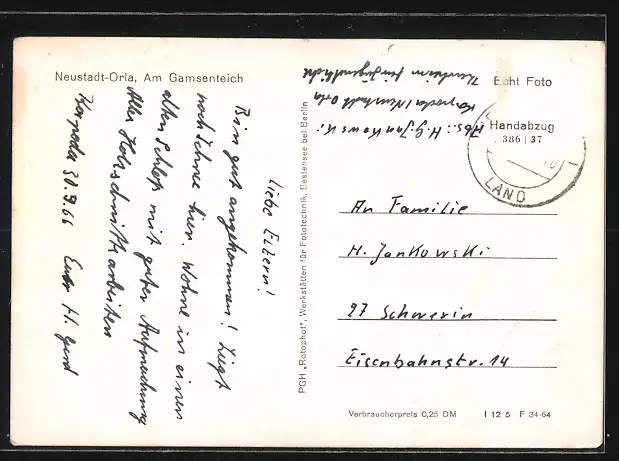 Neustadt-Orla, Am Gamsenteich
Liebe Eltern!
Bin gut angekommen! Liegt
noch Schnee hier. Wohne in einem
alten Schloß mit guter
Alle Holzschnittarbeiten
Korpoda 30.3.66 Euer H. Gerd
PGH „Rotophot", Werkstätten für Fototechnik, Bestensee bei Berlin
Abs: H.G. Jankowski
Korpoda/Neustadt Orla
Echt Foto
Handabzug
386 | 37
LAND
An Familie
H. Jankowski
27 Schwerin
Eisenbahnstr. 14
Verbraucherpreis 0,25 DM I 12 5 F 34-64